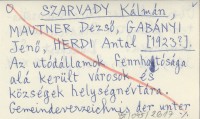 SZARVADY Kálmán,
MAUTNER Dezső, GABÁNYI
Jenő, HERDI Antal [1923?].
Az utódállamok fennhatósága
alá került városok és
községek helységnévtára.
Gemeindeverzeichnis der unter